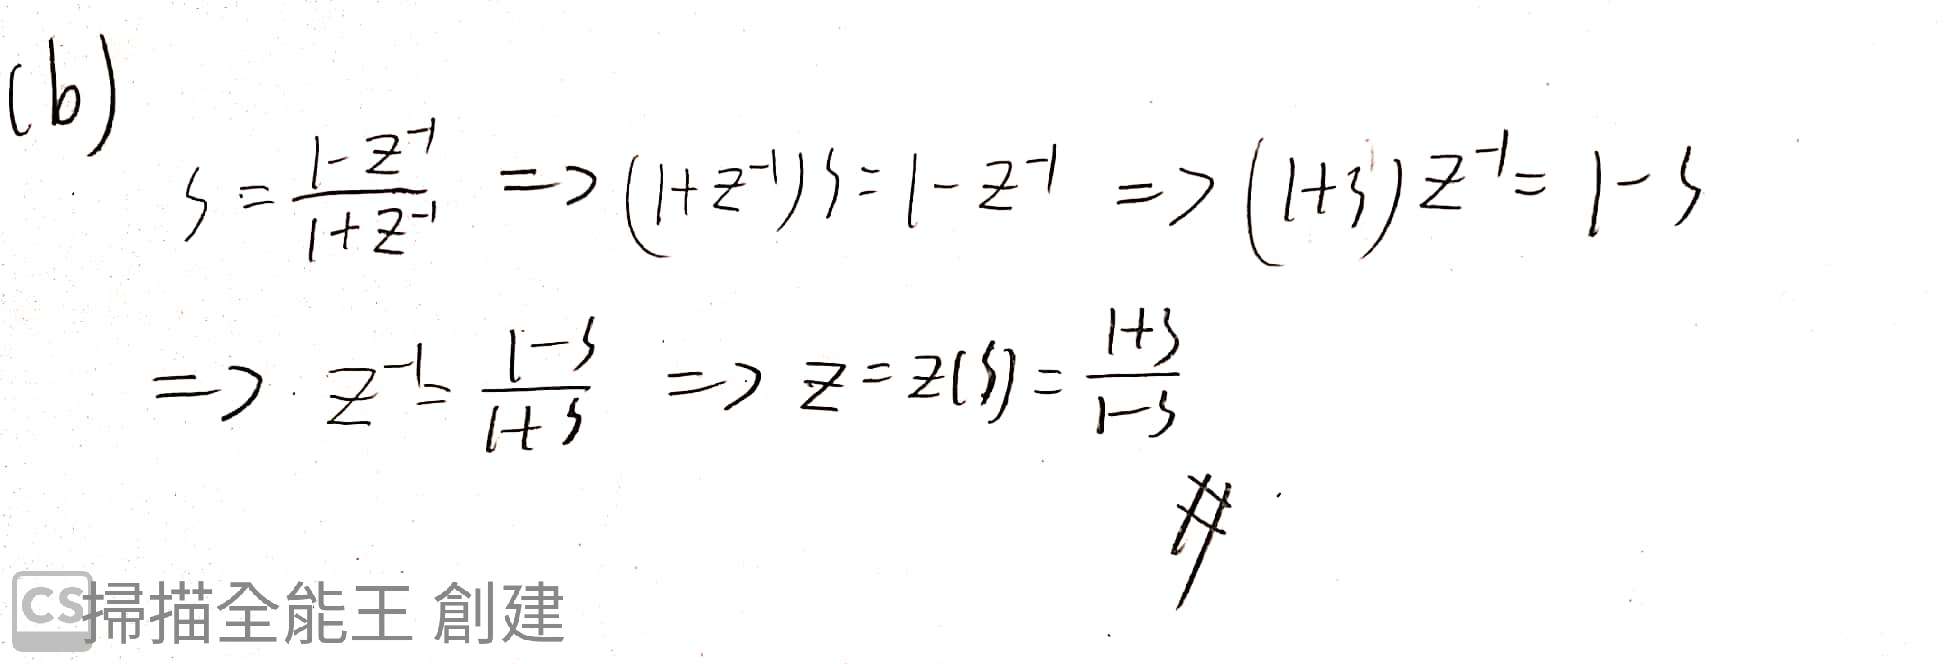 (b)
s = \frac{1-z^{-1}}{1+z^{-1}} => (1+z^{-1})s = 1-z^{-1} => (1+s)z^{-1} = 1-s
=> z^{-1} = \frac{1-s}{1+s} => z = z(s) = \frac{1+s}{1-s}
#
CS掃描全能王 創建